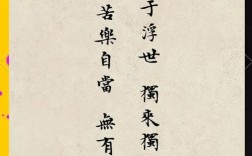 于浮世 獨來獨
苦樂自當 無有